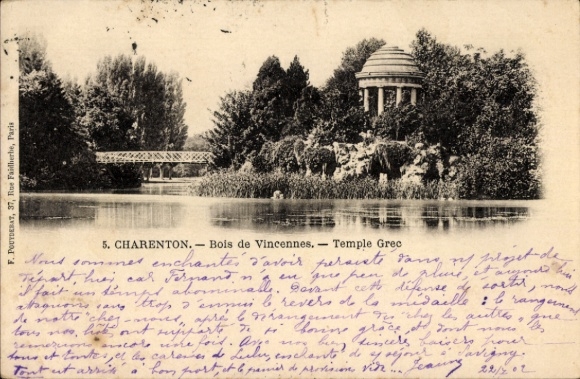 F. POUYDEBAT, 37, Rue Faidherbe, Paris
5. CHARENTON. — Bois de Vincennes. — Temple Grec
Nous sommes enchantés d'avoir persisté dans n/ projet de
départ hier car Fernand n'a eu que peu de pluie, et aujourd'hui
il fait un temps abominable. Devant cette défense de sortir, nous
sans trop d'ennui le revers de la médaille : le rangement
de notre chez nous, après le dérangement des "chez les autres" que
tous nos hôtes ont supporté de si bonne grâce, et dont nous les
remercions encore une fois. Avec nos bien sincères baisers pour
tous et toutes, et les caresses de Lulu, enchanté de s/ séjour à Savigny.
Tout est arrivé à bon port, et le panier de provisions vide... Jeanne 22/5 02